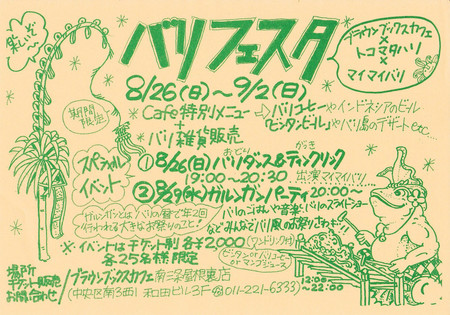 楽しいぞ〜
バリフェスタ
ブラウンブックスカフェ
×
トコマタハリ
×
マイマイバリ
8/26(日)〜9/2(日)
期間限定
Cafe特別メニュー
→バリコーヒーやインドネシアのビール
「ビンタンビール」やバリ風のデザートetc...
+
バリ雑貨販売
スペシャルイベント
①8/26(日)バリダンス&ティンクリック
おどり
がっき
19:00〜20:30 出演マイマイバリ
②8/29(水)ガルンガンパーティ20:00〜
ガルンガンとはバリの暦で年2回
行われる大きなお祭りのこと!
バリのごはんや音楽、バリのスライドショー
などみんなでバリ風のお祭りさわぎ!!
※イベントはチケット制 各¥2000(ワンドリンク付)
各25名様限定
ビンタンorバリコーヒー
orマンゴジュース
場所
チケット販売
お問い合わせ
ブラウンブックスカフェ南三条屋根裏店
(中央区南3西1 和田ビル3F ☎011-221-6333)
12:00〜
〜22:00